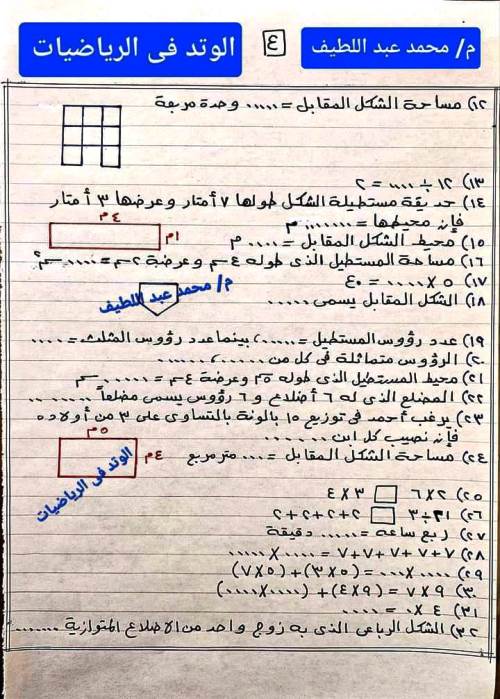 م/ محمد عبد اللطيف
٤
الوتد فى الرياضيات
١٢) مساحة الشكل المقابل = ..... وحدة مربعة
١٣) ١٢ ÷ .... = ٢
١٤) حديقة مستطيلة الشكل طولها ٧ أمتار وعرضها ٣ أمتار
فإن محيطها = ........ م
٤م
١م
١٥) محيط الشكل المقابل = .... م
١٦) مساحة المستطيل الذى طوله ٤سم وعرضة ٢سم = ..... سم٢
١٧) ٥ × .... = ٤٠
م/ محمد عبد اللطيف
١٨) الشكل المقابل يسمى .....
١٩) عدد رؤوس المستطيل = ..... ، بينما عدد رؤوس المثلث = ....
٢٠) الرؤوس متماثلة فى كل من ...... ، ......
٢١) محيط المستطيل الذى طوله ٥سم وعرضة ٤سم = ...... سم
٢٢) المضلع الذى له ٦ أضلاع و ٦ رؤوس يسمى مضلعاً ........
٢٣) يرغب أحمد فى توزيع ١٥ بالونة بالتساوى على ٣ من أولاده
فإن نصيب كل ابن .......
٥م
٤م
٢٤) مساحة الشكل المقابل = .... متر مربع
الوتد فى الرياضيات
٢٥) ٢ × ٦ □ ٣ × ٤
٢٦) ٢١ ÷ ٣ □ ٢+٢+٢+٢
٢٧) ربع ساعه = ...... دقيقة
٢٨) ٧+٧+٧+٧+٧ = .... × .....
٢٩) .... × .... = (٥ × ٣) + (٥ × ٧)
٣٠) ٩ × ٧ = (٩ × ٤) + (.... × ....)
٣١) ٤ × ٠ = ....
٣٢) الشكل الرباعى الذى به زوج واحد من الاضلاع المتوازية ........